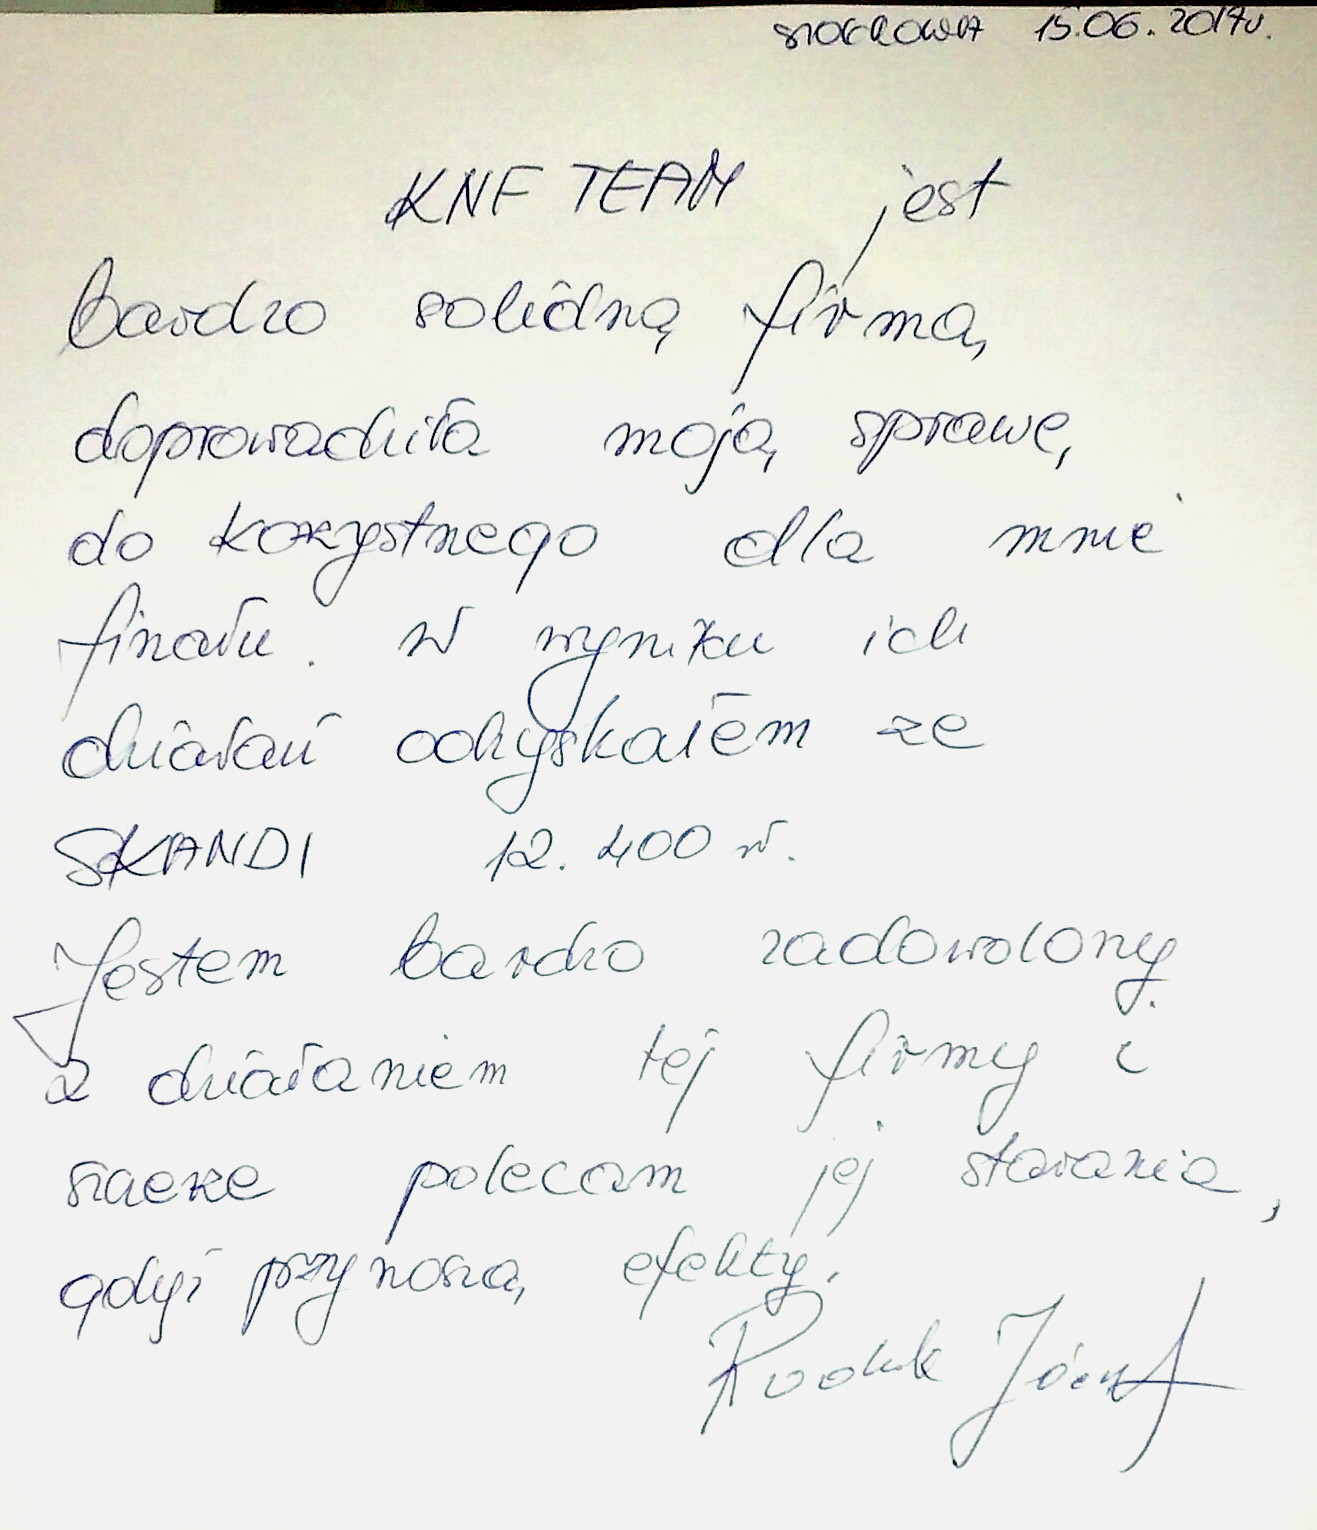 15.06.2017r.
KNF TEAM jest
bardzo solidną firmą,
doprowadziła moją sprawę,
do kozystnego dla mnie
finału. W wyniku ich
działań odzyskałem ze
SKANDI 12.400 zł.
Jestem bardzo zadowolony
z działaniem tej firmy i
szczeże polecam jej starania,
gdyż przynoszą efekty.
Józef